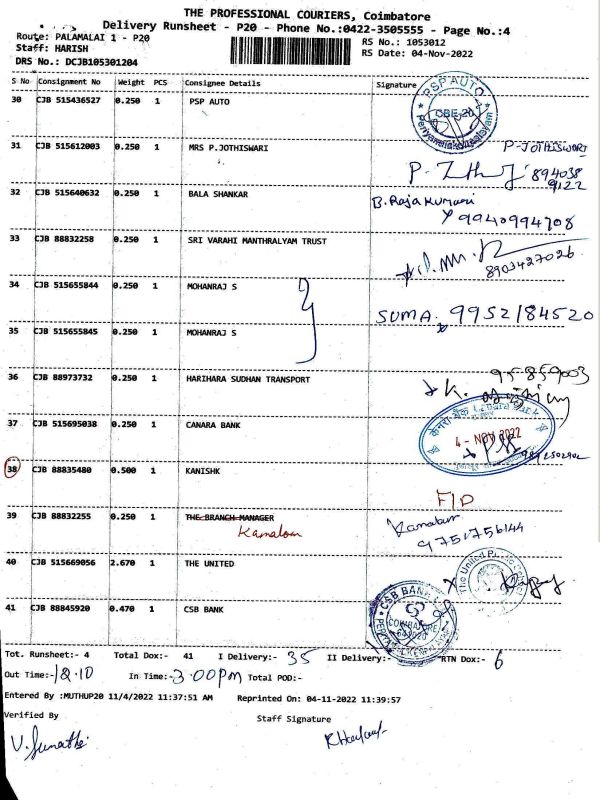 THE PROFESSIONAL COURIERS, Coimbatore
Delivery Runsheet - P20 - Phone No.:0422-3505555 - Page No.:4
Route: PALAMALAI 1 - P20
RS No.: 1053012
Staff: HARISH
RS Date: 04-Nov-2022
DRS No.: DCJB105301204
S No Consignment No Weight PCS Consignee Details Signature
30 CJB 515436527 0.250 1 PSP AUTO
PSP AUTO
CBE-20
31 CJB 515612003 0.250 1 MRS P.JOTHISWARI P-JOTHISWARI
894038
9122
32 CJB 515640632 0.250 1 BALA SHANKAR B.Rajakumari
9940994708
33 CJB 88832258 0.250 1 SRI VARAHI MANTHRALYAM TRUST
8903427026
34 CJB 515655844 0.250 1 MOHANRAJ S
SUMA. 9952184520
35 CJB 515655845 0.250 1 MOHANRAJ S
36 CJB 88973732 0.250 1 HARIHARA SUDHAN TRANSPORT 95859003
37 CJB 515695038 0.250 1 CANARA BANK
4 - NOV 2022
38 CJB 88835480 0.500 1 KANISHK
F/D
39 CJB 88832255 0.250 1 THE BRANCH MANAGER
9751756144
40 CJB 515669056 2.670 1 THE UNITED
41 CJB 88845920 0.470 1 CSB BANK
CSB BANK
COIMBATORE
641020
Tot. Runsheet:- 4 Total Dox:- 41 I Delivery:- 35 II Delivery:- RTN Dox:- 6
Out Time:- 12.10 In Time:- 3.00pm Total POD:-
Entered By :MUTHUP20 11/4/2022 11:37:51 AM Reprinted On: 04-11-2022 11:39:57
Verified By
Staff Signature